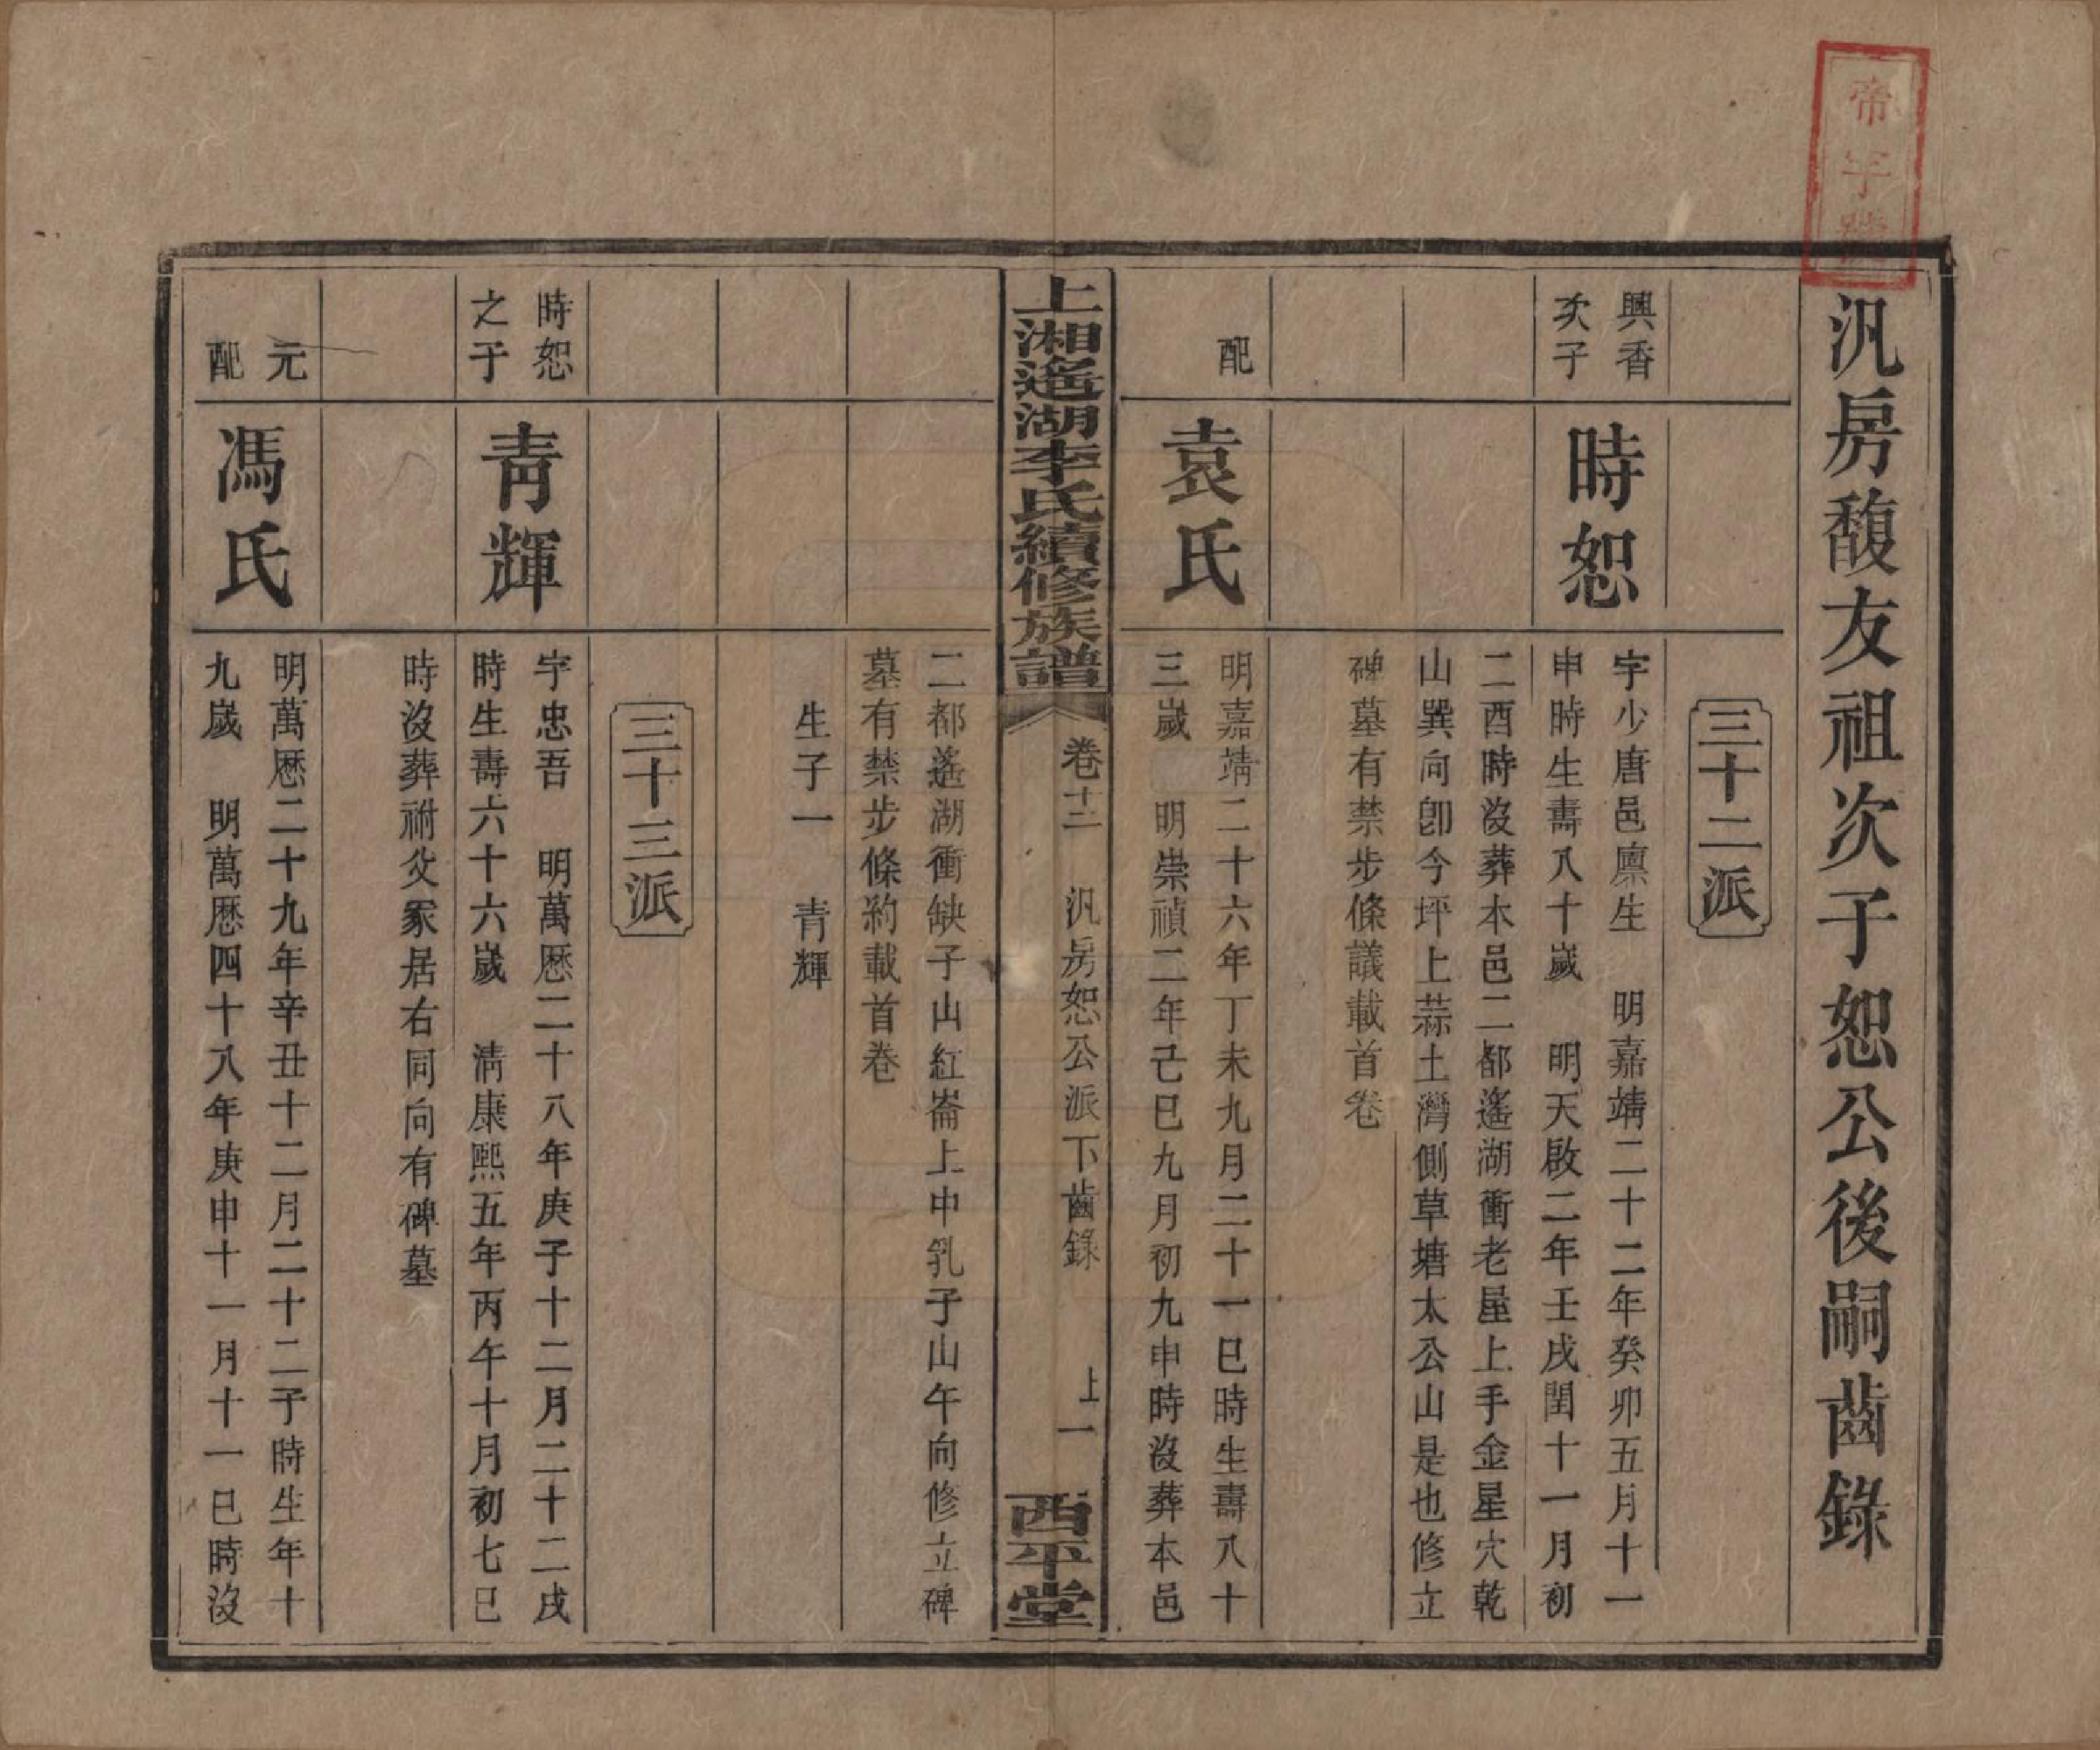 帝字號
汎房馥友祖次子恕公後嗣齒錄
三十二派
興香
次子
時恕
字少唐邑廪生　明嘉靖二十二年癸卯五月十一
申時生壽八十歲　明天啟二年壬戌閏十一月初
二酉時沒葬本邑二都遙湖衝老屋上手金星穴乾
山巽向卽今坪上蒜土灣側草塘太公山是也修立
碑墓有禁步條議載首卷
配
袁氏
明嘉靖二十六年丁未九月二十一巳時生壽八十
三歲　明崇禎二年己巳九月初九申時沒葬本邑
上湘遙湖李氏續修族譜
卷十二
汎房恕公派下齒錄
上一
西平堂
二都遙湖衝缺子山紅崙上中乳子山午向修立碑
墓有禁步條約載首卷
生子一　青輝
三十三派
時恕
之子
青輝
字忠吾　明萬歷二十八年庚子十二月二十二戌
時生壽六十六歲　清康熙五年丙午十月初七巳
時沒葬祔父冢居右同向有碑墓
元
配
馮氏
明萬歷二十九年辛丑十二月二十二子時生年十
九歲　明萬歷四十八年庚申十一月十一巳時沒